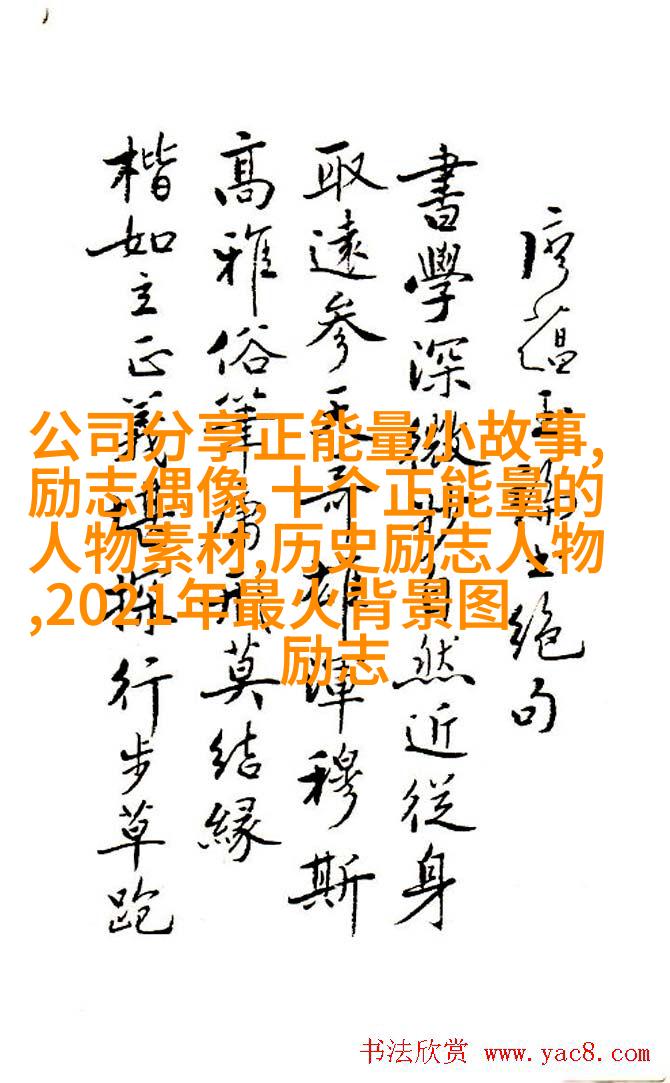 廖蘊玉書絕句
書學深微自然近從身
取遠參天奇雄渾穆斯
高雅俗筆庸莫結緣
楷如立正義探行步草跑
公司分享正能量小故事,
励志偶像,十个正能量的
人物素材,历史励志人物
,2021年最火背景图
励志
书法欣赏 www.yac8.com